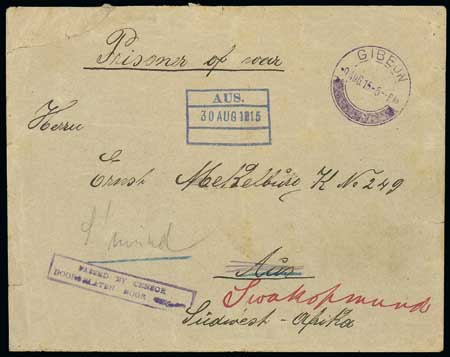 Prisoner of war
GIBEON
AUG 15-5-PM
AUS.
30 AUG 1915
Herrn
Ernst Mekelburg K No 249
S'mund
PASSED BY CENSOR
DOORGELATEN DOOR
Aus
Swakopmund
Südwest-Afrika